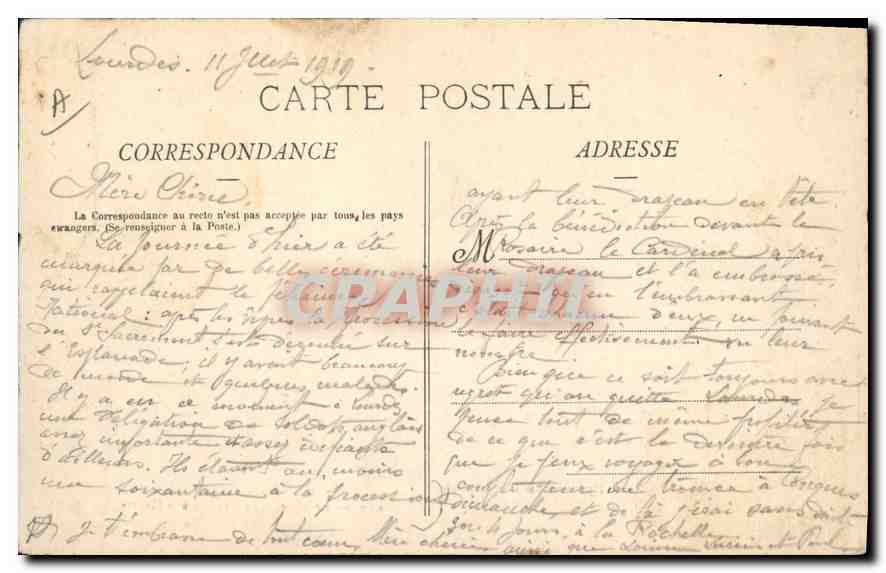 Lourdes. 11 Juillet 1919.
A
CARTE POSTALE
CORRESPONDANCE
Mère Chérie.
La Correspondance au recto n'est pas acceptée par tous les pays
étrangers. (Se renseigner à la Poste.)
La journée d'hier a été
marquée par de belles cérémonies
qui rappelaient le
National: après les Vêpres la procession
du St Sacrement s'est déroulée sur
l'Esplanade; il y avait beaucoup
de monde et quelques malades.
Il y a en ce moment à Lourdes
une délégation de soldats anglais
assez importante et assez
d'ailleurs. Ils étaient au moins
une soixantaine à la procession
ADRESSE
ayant leur drapeau en tête.
Après la bénédiction devant le
M
Rosaire le Cardinal a pris
leur drapeau et l'a embrassé,
en l'embrassant
chacun d'eux, ne pouvant
le faire effectivement vu leur
nombre
quoique ce soit toujours avec
regret qu'on quitte Lourdes je
pense tout de même profiter
de ce que c'est la dernière fois
que je peux voyager à bon
compte pour me à
dimanche et de là j'irai sans doute
3 ou 4 jours à la Rochelle
Je t'embrasse de tout coeur, Mère chérie, ainsi que et
CPAPHIL